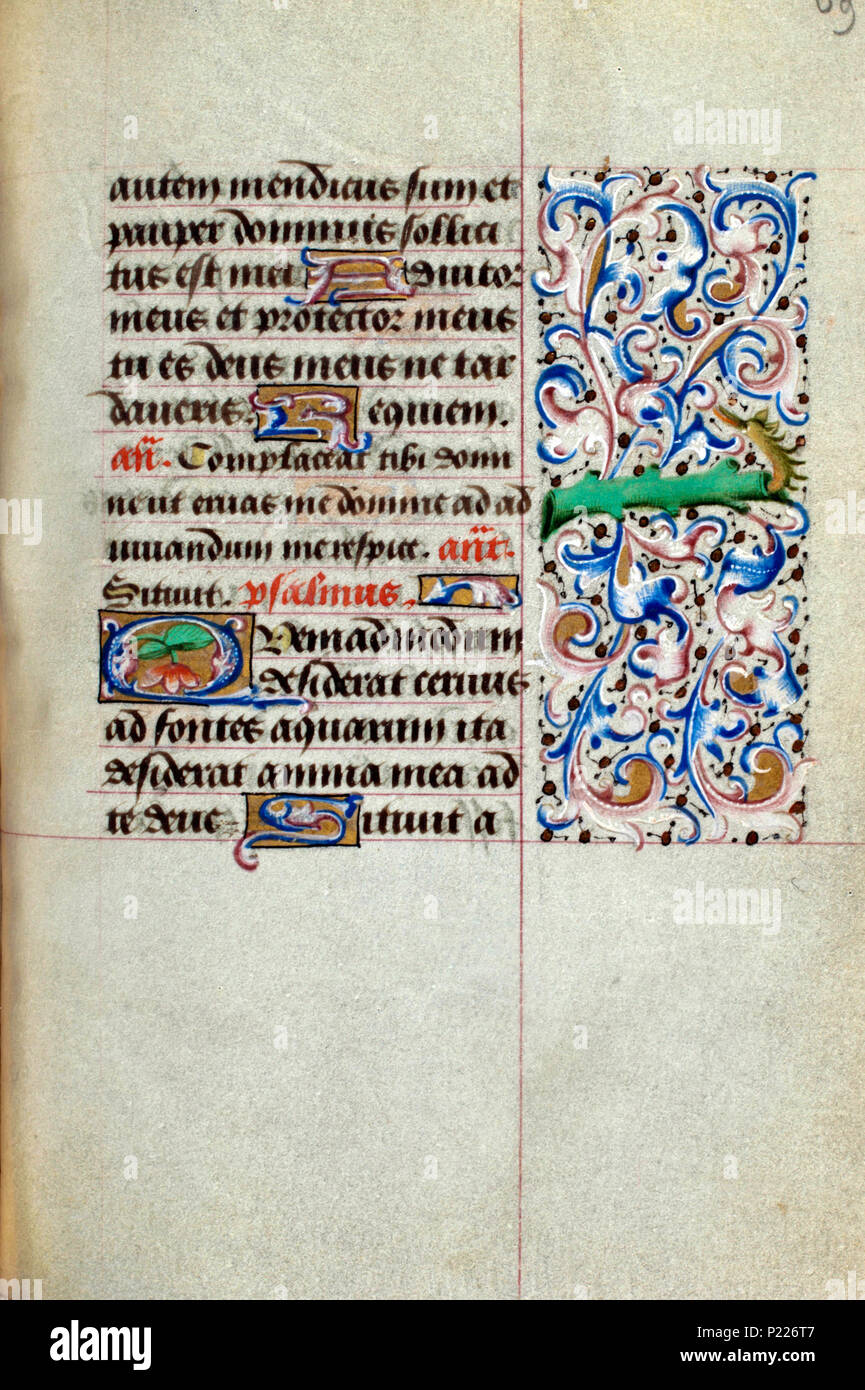 autem mendicus sum et
pauper dominus sollici
tus est mei Adiutor
meus et protector meus
tu es deus meus ne tar
daueris. Requiem.
añ. Complaceat tibi domi
ne ut eruas me domine ad ad
iuuandum me respice. añt.
Sitiuit. psalmus.
Quemadmodum
desiderat ceruus
ad fontes aquarum ita
desiderat anima mea ad
te deus Sitiuit a
alamy
Image ID: P226T7
www.alamy.com